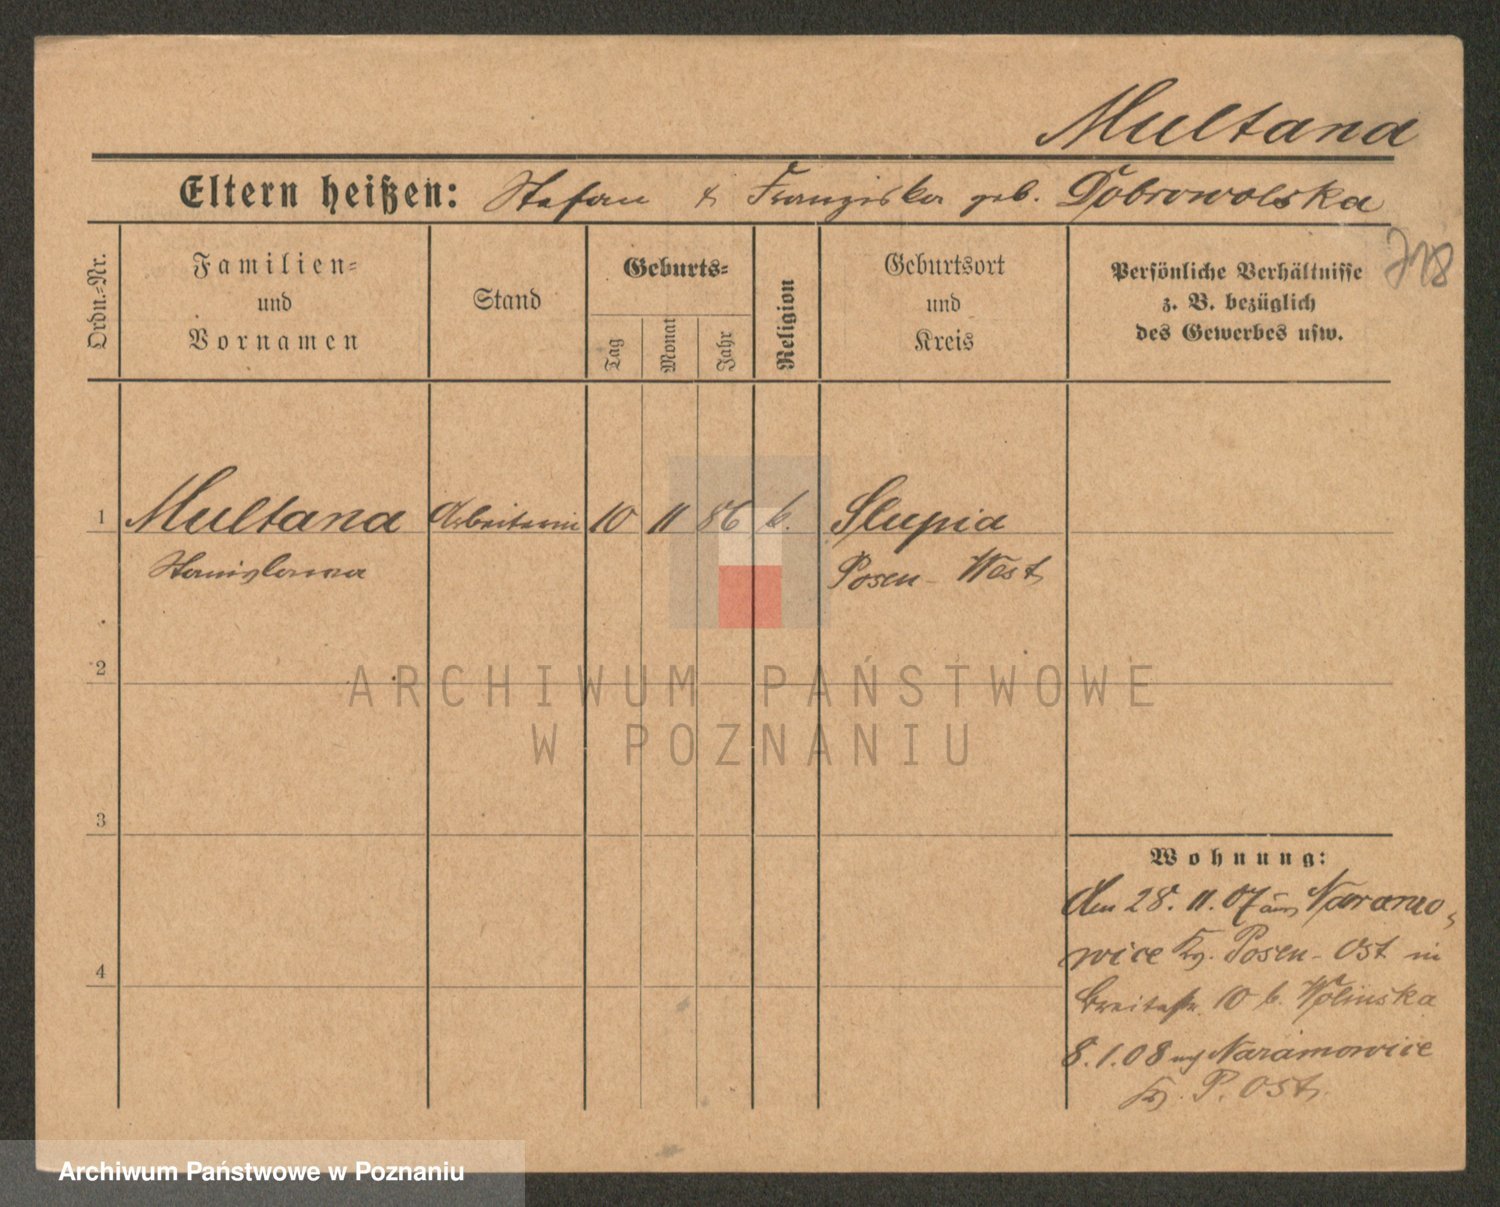 Multana
Eltern heißen: Stefan & Franziska geb. Dobrowolska
Ordn.-Nr.
Familien-
und
Vornamen
Stand
Geburts-
Tag
Monat
Jahr
Religion
Geburtsort
und
Kreis
Persönliche Verhältnisse
z. B. bezüglich
des Gewerbes usw.
1 Multana Arbeiterin 10 11 86 k. Slupia
Stanislawa Posen-West
2
ARCHIWUM PAŃSTWOWE
W POZNANIU
3
Wohnung:
Am 28. 11. 07 aus Naramo-
wice Kr. Posen-Ost in
Breitestr. 10 b. Wolinska
4
8.1.08 n. Naramowice
Kr. P. Ost.
Archiwum Państwowe w Poznaniu